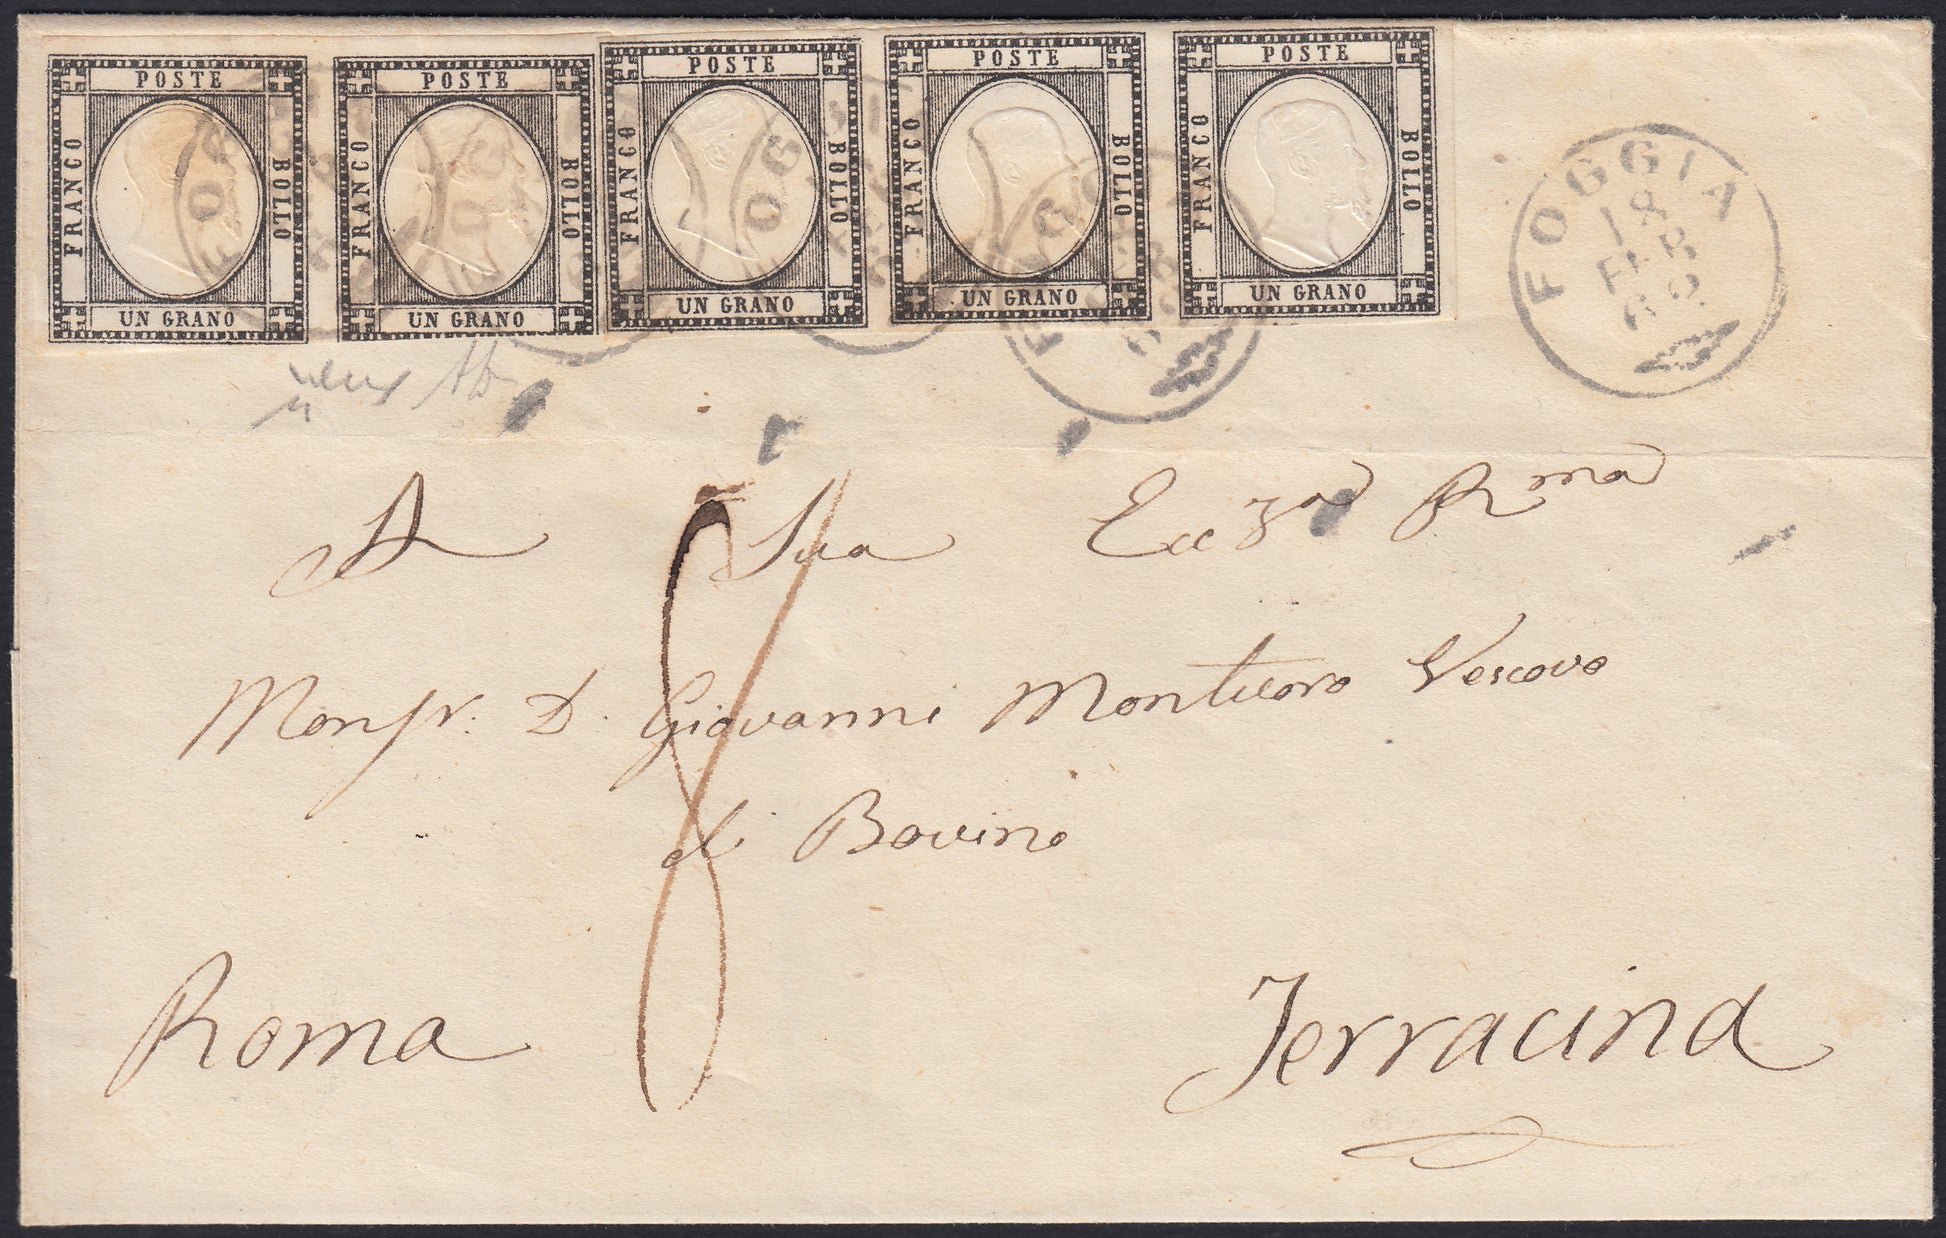 POSTE POSTE POSTE POSTE POSTE
FRANCO BOLLO FRANCO BOLLO FRANCO BOLLO FRANCO BOLLO FRANCO BOLLO
UN GRANO UN GRANO UN GRANO UN GRANO UN GRANO
FOGGIA
18
FEB
62
A Sua Ecc.za Rma
Monsr. D. Giovanni Montuoro Vescovo
di Bovino
Roma Terracina